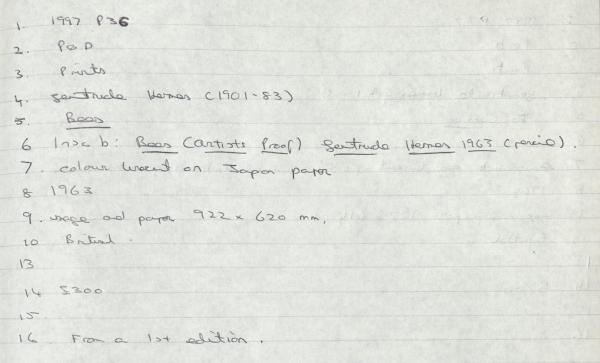 1. 1997 P36
2. P&D
3. Prints
4. Gertrude Hermes (1901-83)
5. Bees
6 Insc b: Bees (Artists Proof) Gertrude Hermes 1963 (pencil).
7. colour linocut on Japan paper
8 1963
9. image and paper 922 x 620 mm.
10 British.
13
14 £300
15
16 From a 1st edition.